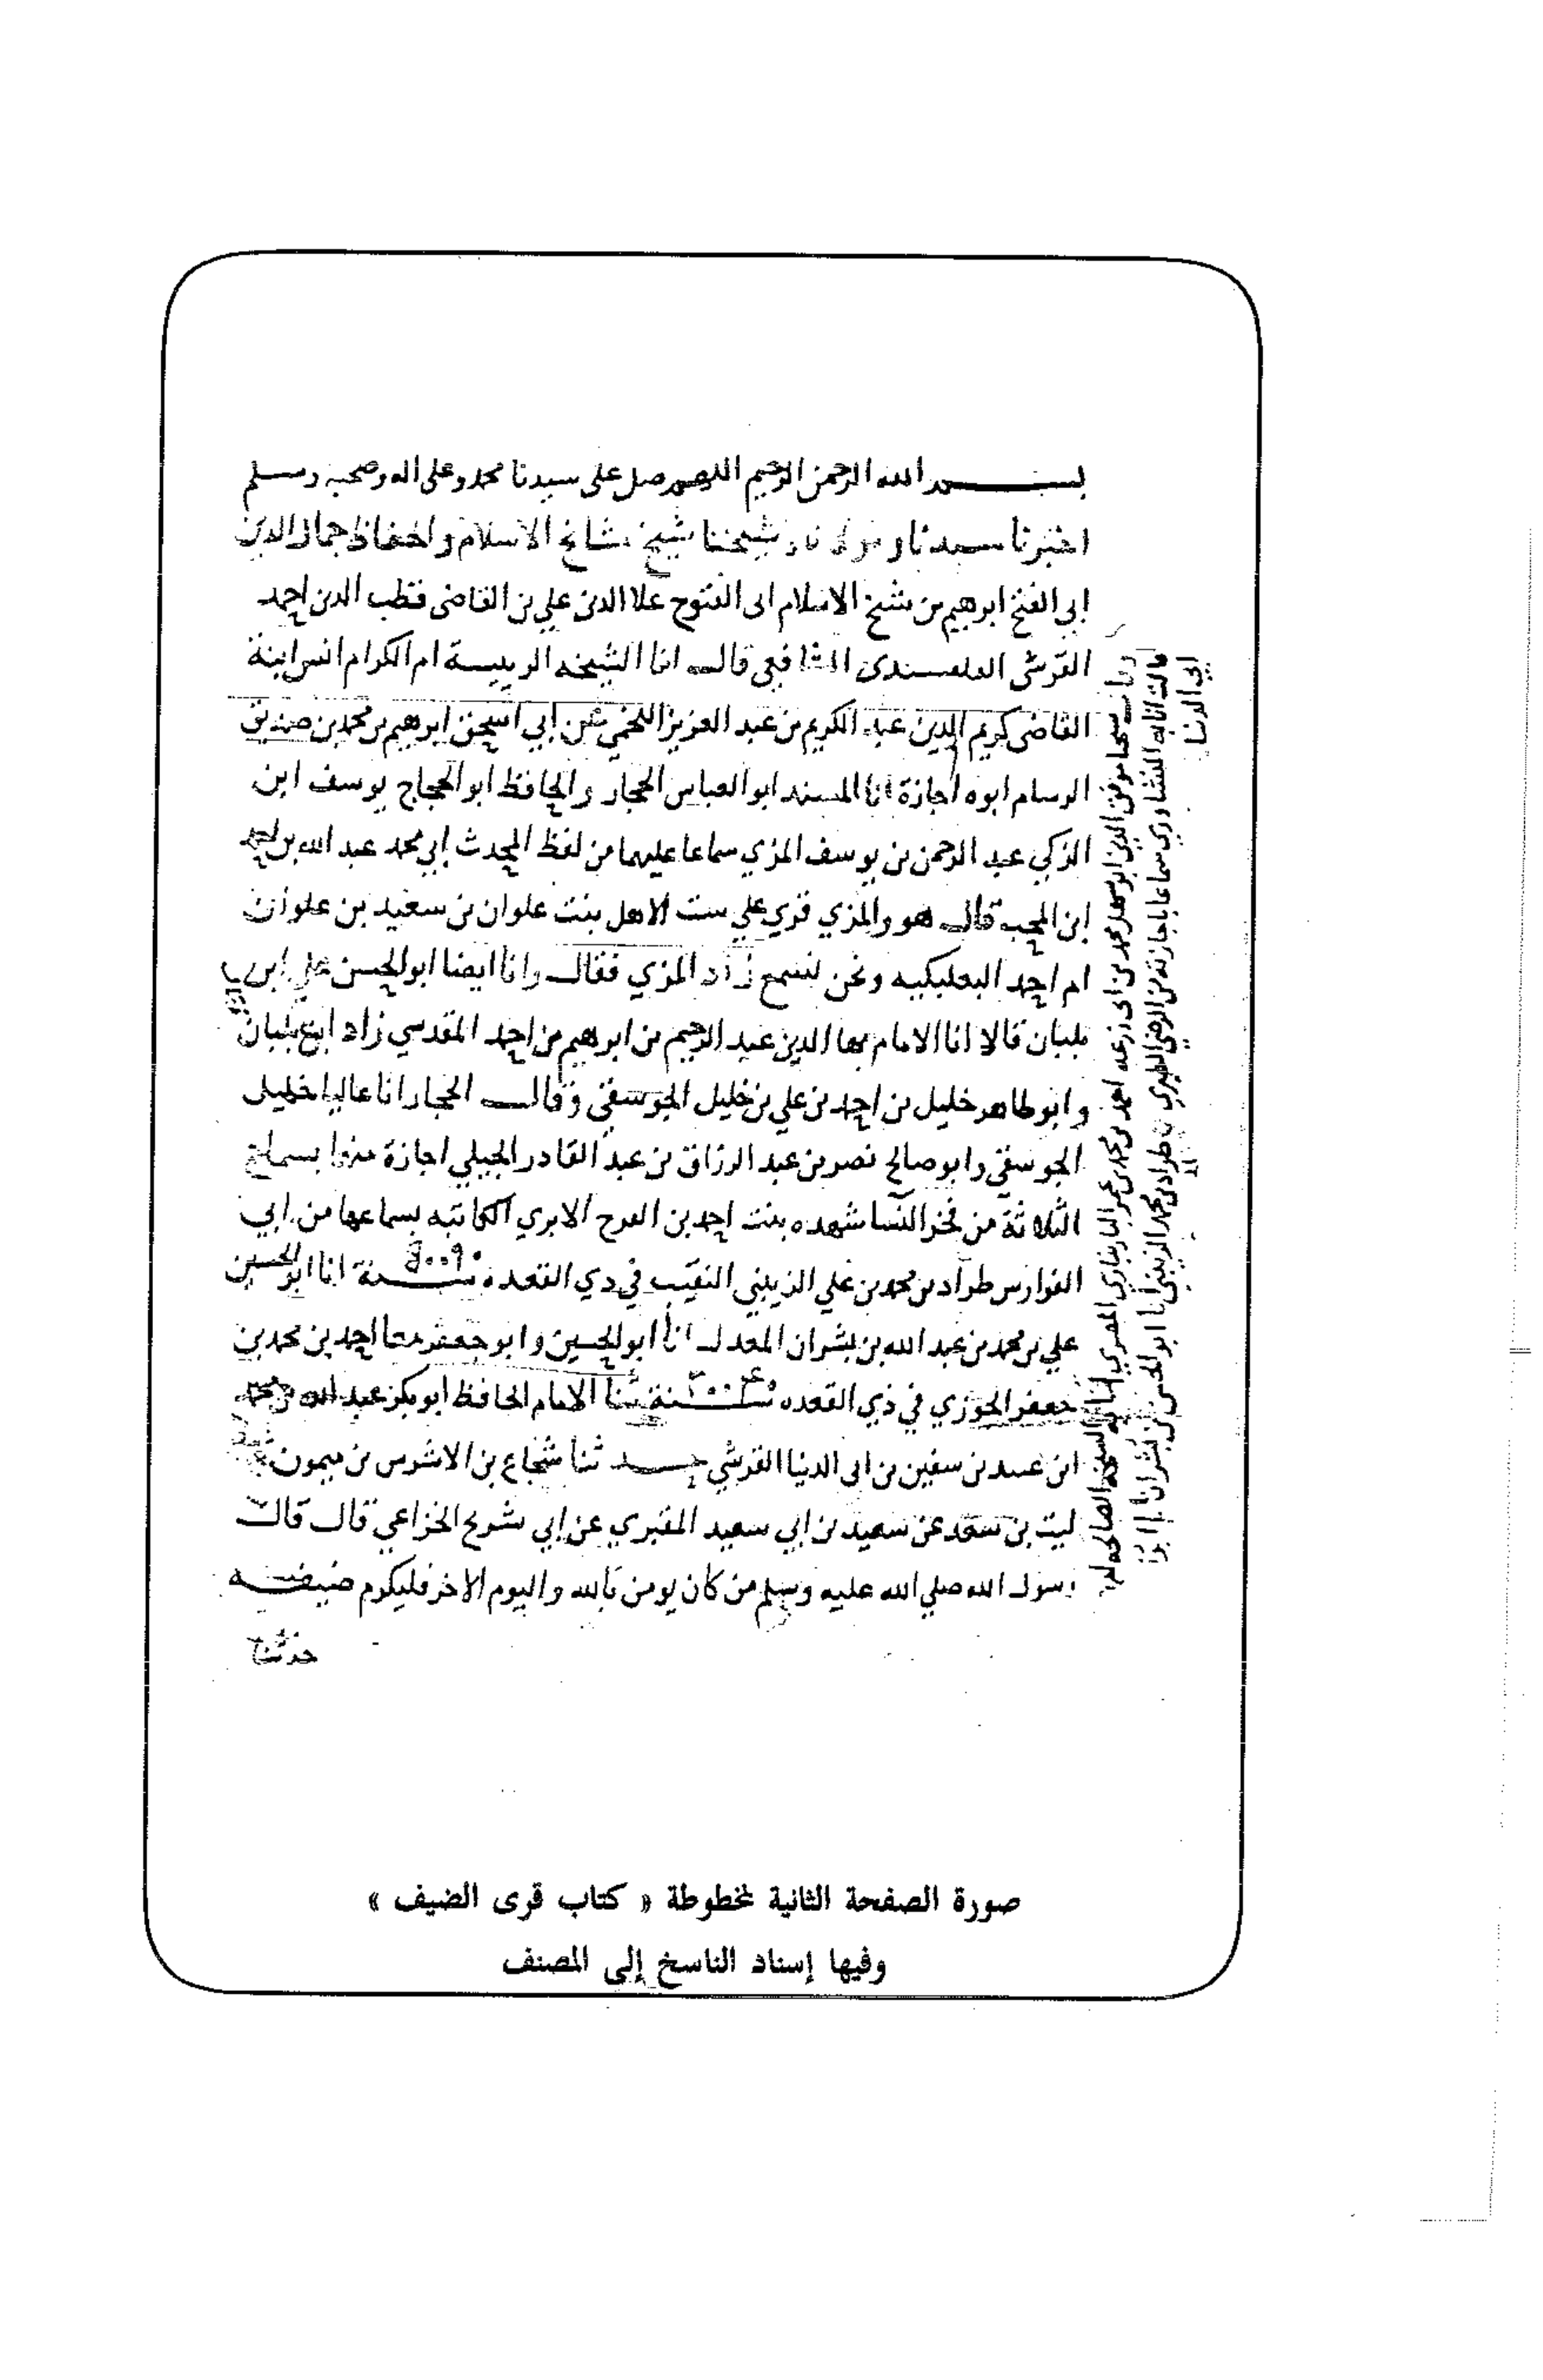 بسم الله الرحمن الرحيم اللهم صل على سيدنا محمد وعلى اله وصحبه وسلم
اخبرنا سيدنا و شيخنا شيخ مشايخ الاسلام والحفاظ جمال الدين
ابي الفتح ابرهيم بن شيخ الاسلام ابى الفتوح علا الدين علي بن القاضى قطب الدين احمد
القرشى القلقسندى الشافعي قال انا الشيخه الرييسة ام الكرام انس ابنة
القاضى كريم الدين عبد الكريم بن عبد العزيز اللخمي عن ابي اسحق ابرهيم بن محمد بن صديق
الرسام ابوه اجازة انا المسند ابو العباس الحجار والحافظ ابو الحجاج يوسف ابن
الزكي عبد الرحمن بن يوسف المزي سماعا عليهما من لفظ المحدث ابي محمد عبد الله بن احمد
ابن المحب قال هو والمزي قري علي ست الاهل بنت علوان بن سعيد بن علوان
ام احمد البعلبكيه ونحن نسمع زاد المزي فقال وانا ايضا ابو الحسن علي ابن
بلبان قالا انا الامام بها الدين عبد الرحيم بن ابرهيم بن احمد المقدسي زاد ابن بلبان
وابو طاهر خليل بن احمد بن علي بن خليل الجوسقي وقال الحجار انا عاليا خليل
الجوسقي وابو صالح نصر بن عبد الرزاق بن عبد القادر الجيلي اجازة منهما بسماع
الثلاثة من فخر النسا شهده بنت احمد بن الفرج الابري الكاتبه بسماعها من ابي
الفوارس طراد بن محمد بن علي الزينبي النقيب في ذي القعده سنة انا ابو الحسين
علي بن محمد بن عبد الله بن بشران المعدل انا ابو الحسين وابو جعفر معا احمد بن محمد بن
جعفر الجوزي في ذي القعده سنة ثنا الامام الحافظ ابو بكر عبد الله بن محمد
ابن عبيد بن سفين بن ابى الدنيا القرشي حد ثنا شجاع بن الاشرس بن ميمون
ليث بن سعد عن سعيد بن ابي سعيد المقبري عن ابي شريح الخزاعي قال قال
رسول الله صلي الله عليه وسلم من كان يومن بالله واليوم الاخر فليكرم ضيفه
حدثنا
موفق الدين ابو سهل محمد بن ابى زرعه احمد بن محمد بن عمر البارنباري المصري الشيخه الصالحه
قالت انا به النشاوري سماعا باجازته من الرضي الطبري طراد بن محمد الزينبي انا ابو الحسن بن بشران
ابي الدنيا
صورة الصفحة الثانية لمخطوطة « كتاب قرى الضيف »
وفيها إسناد الناسخ إلى المصنف